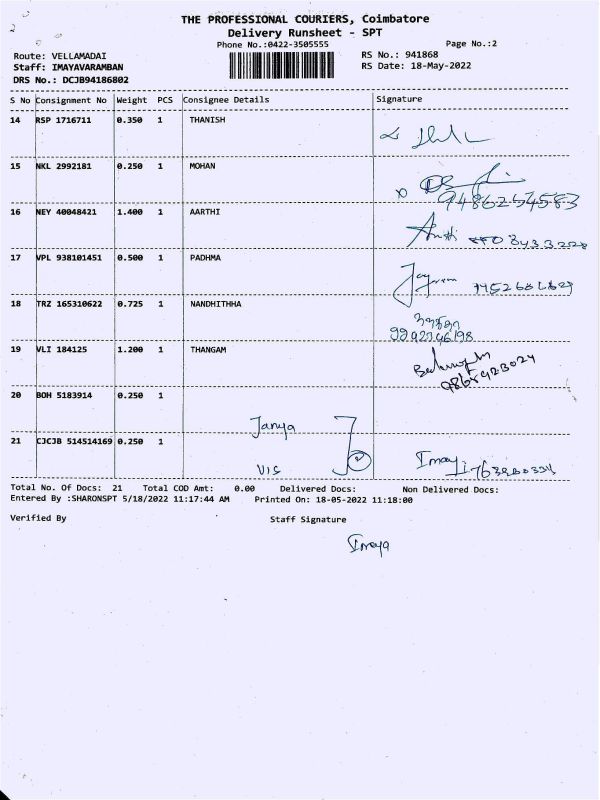 THE PROFESSIONAL COURIERS, Coimbatore
Delivery Runsheet - SPT
Phone No.:0422-3505555
Page No.:2
Route: VELLAMADAI
RS No.: 941868
Staff: IMAYAVARAMBAN
RS Date: 18-May-2022
DRS No.: DCJB94186802
S No Consignment No Weight PCS Consignee Details Signature
14 RSP 1716711 0.350 1 THANISH
15 NKL 2992181 0.250 1 MOHAN
9486254583
16 NEY 40048421 1.400 1 AARTHI
17 VPL 938101451 0.500 1 PADHMA
18 TRZ 165310622 0.725 1 NANDHITHHA
19 VLI 184125 1.200 1 THANGAM
20 BOH 5183914 0.250 1
21 CJCJB 514514169 0.250 1
Total No. Of Docs: 21 Total COD Amt: 0.00 Delivered Docs: Non Delivered Docs:
Entered By :SHARONSPT 5/18/2022 11:17:44 AM Printed On: 18-05-2022 11:18:00
Verified By Staff Signature
Imaya